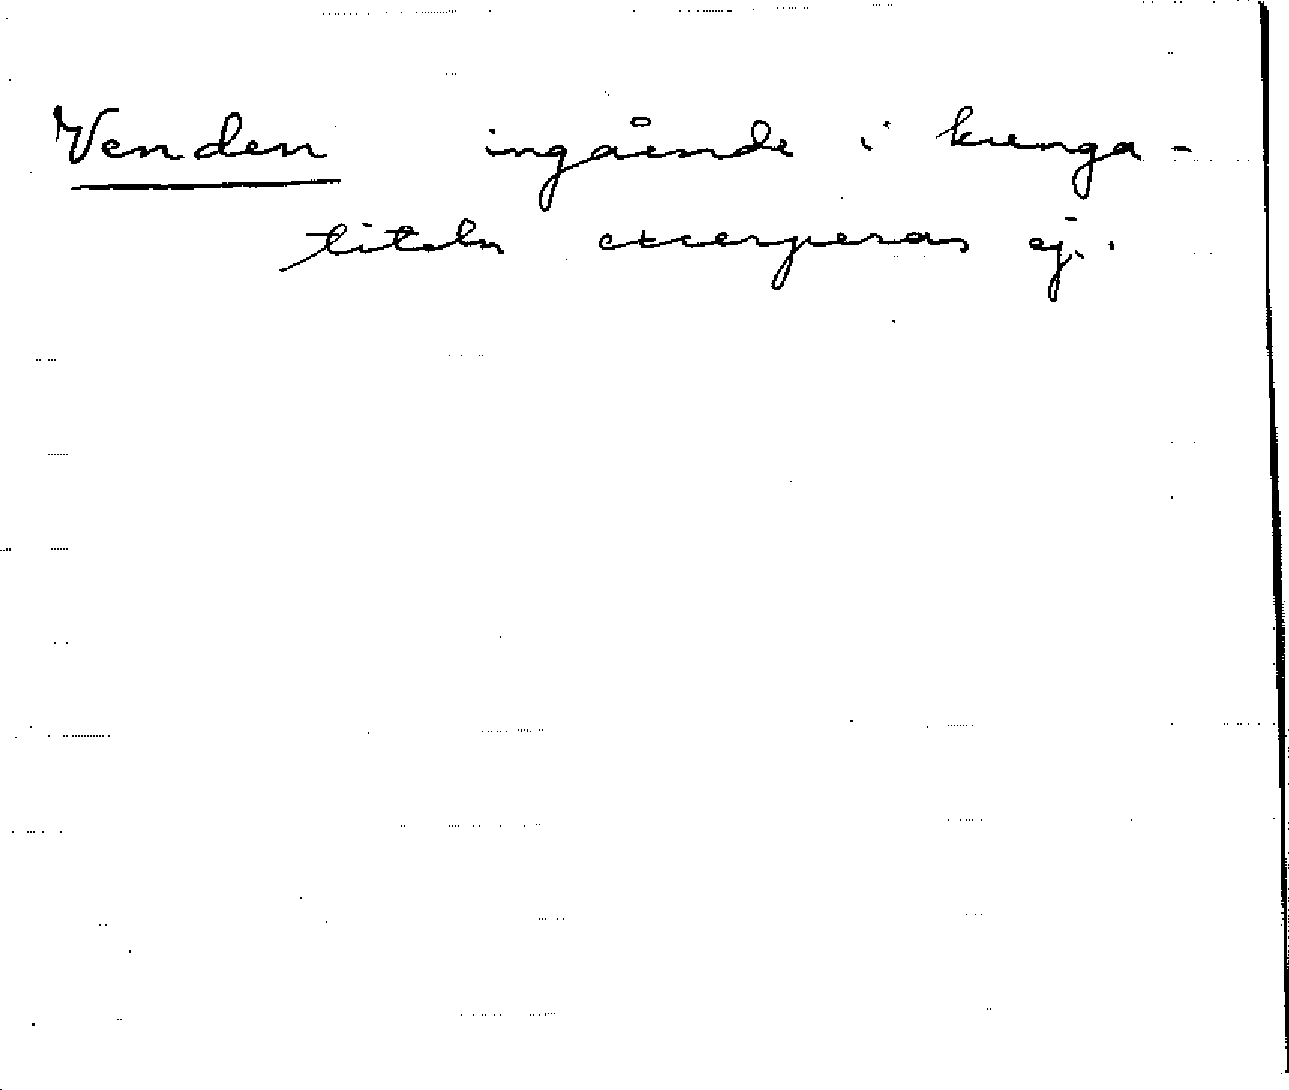 Venden ingående i kunga-
titeln excerperas ej.